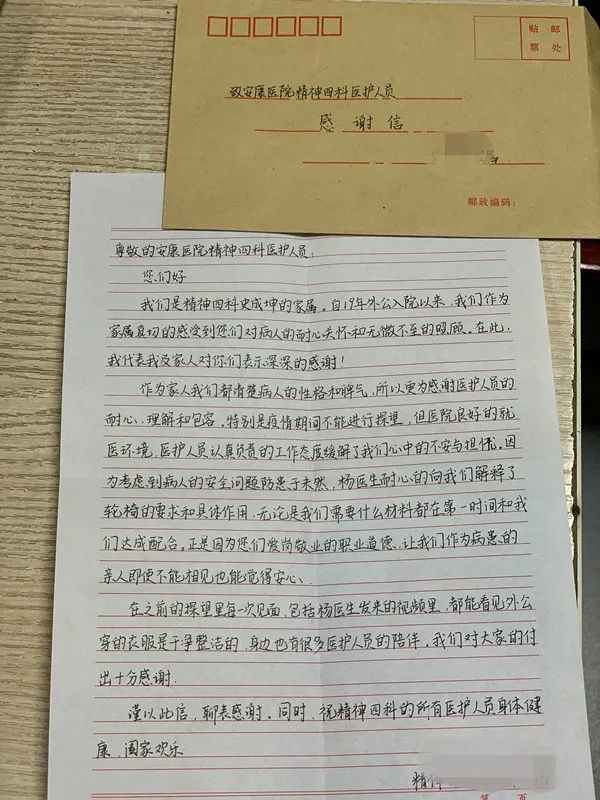 贴 邮
票 处
致安康医院精神四科医护人员
感 谢 信
邮政编码：
尊敬的安康医院精神四科医护人员：
您们好
我们是精神四科史成坤的家属。自19年外公入院以来，我们作为
家属真切的感受到您们对病人的耐心关怀和无微不至的照顾。在此，
我代表我及家人对你们表示深深的感谢！
作为家人我们都清楚病人的性格和脾气，所以更为感谢医护人员的
耐心、理解和包容，特别是疫情期间不能进行探望，但医院良好的就
医环境，医护人员认真负责的工作态度缓解了我们心中的不安与担忧。因
为考虑到病人的安全问题防患于未然，杨医生耐心的向我们解释了
轮椅的要求和具体作用，无论是我们需要什么材料都在第一时间和我
们达成配合。正是因为您们爱岗敬业的职业道德、让我们作为病患的
亲人即使不能相见也能觉得安心、
在之前的探望里每一次见面，包括杨医生发来的视频里，都能看见外公
穿的衣服是干净整洁的，身边也有很多医护人员的陪伴，我们对大家的付
出十分感谢.
谨以此信，聊表感谢。同时，祝精神四科的所有医护人员身体健
康，阖家欢乐
第 页